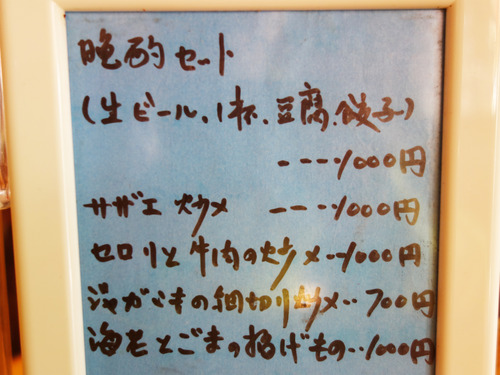 晩酌セット
(生ビール、1杯、豆腐、餃子)
----1000円
サザエ 炒メ ----1000円
セロリと牛肉の炒メ--1000円
ジャガイモの細切り炒メ--700円
海老とごまの揚げもの--1000円